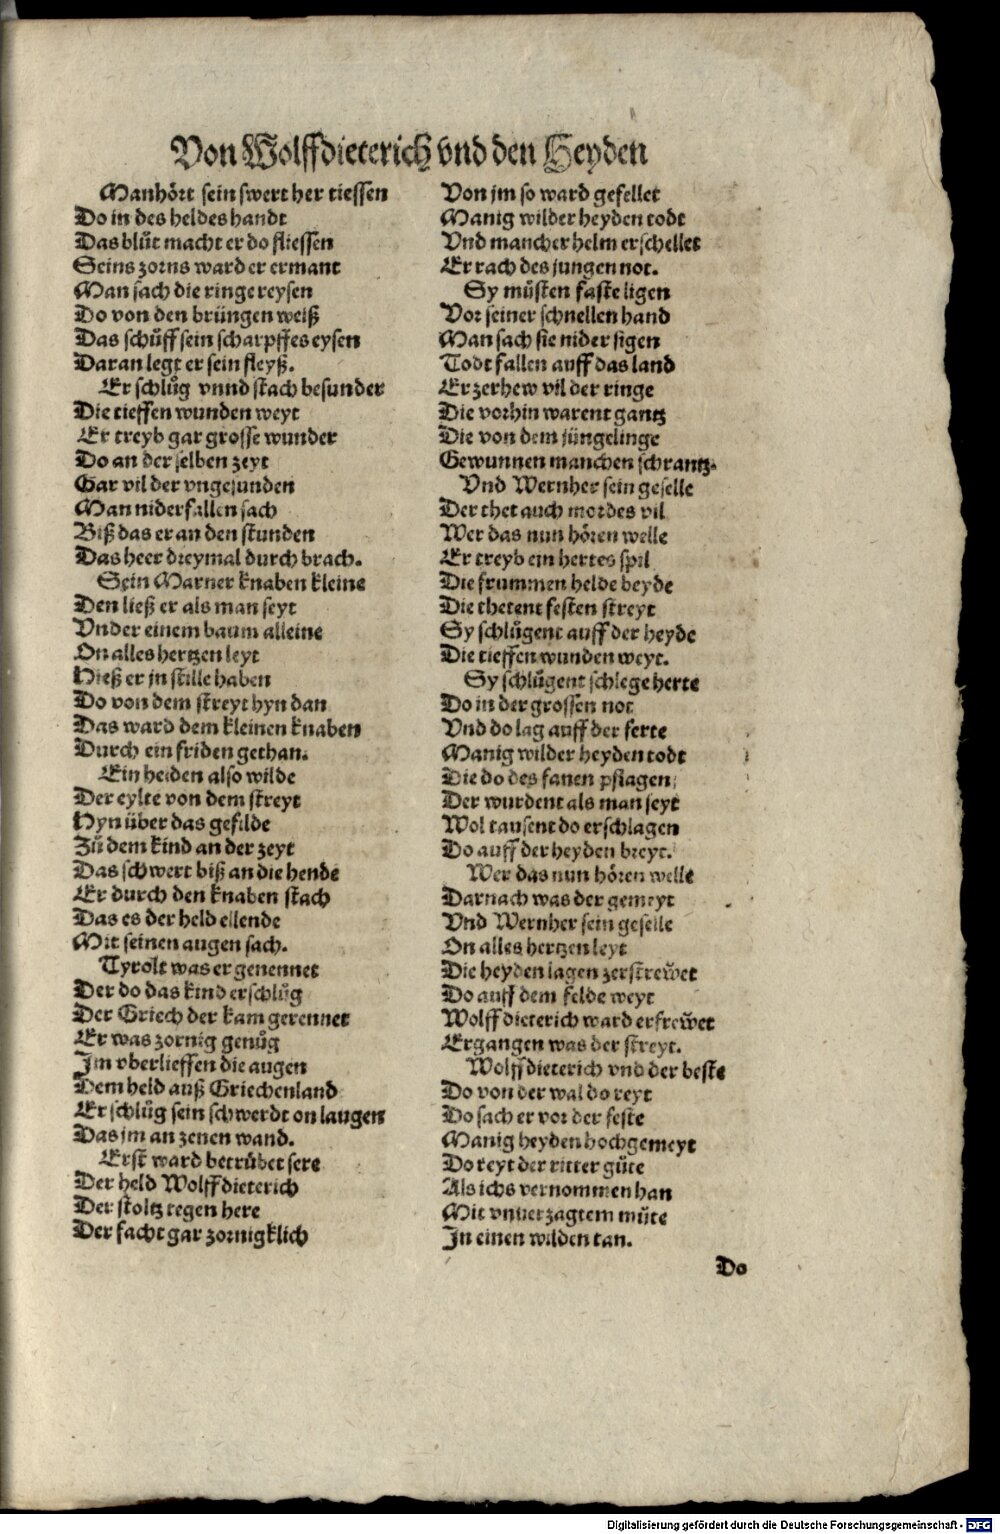 Von Wolffdieterich vnd den Heyden
Man hört sein swert her tiessen
Do in des heldes handt
Das blůt macht er do fliessen
Seins zorns ward er ermant
Man sach die ringe reysen
Do von den brüngen weiß
Das schůff sein scharpffes eysen
Daran legt er sein fleyß.
Er schlůg vnnd stach besunder
Die tieffen wunden weyt
Er treyb gar grosse wunder
Do an der selben zeyt
Gar vil der vngesunden
Man nider fallen sach
Biß das er an den stunden
Das heer dreymal durch brach.
Sein Marner knaben kleine
Den ließ er als man seyt
Vnder einem baum alleine
On alles hertzen leyt
Hieß er jn stille haben
Do von dem streyt hyn dan
Das ward dem kleinen knaben
Durch ein friden gethan.
Ein heiden also wilde
Der eylte von dem streyt
Hyn über das gefilde
Zů dem kind an der zeyt
Das schwert biß an die hende
Er durch den knaben stach
Das es der held ellende
Mit seinen augen sach.
Tyrolt was er genennet
Der do das kind erschlůg
Der Griech der kam gerennet
Er was zornig genůg
Im vberlieffen die augen
Dem held auß Griechenland
Er schlůg sein schwerdt on laugen
Das jm an zenen wand.
Erst ward betrůbet sere
Der held Wolffdieterich
Der stoltz tegen here
Der facht gar zornigklich
Von jm so ward gefellet
Manig wilder heyden todt
Vnd mancher helm erschellet
Er rach des jungen not.
Sy můsten faste ligen
Vor seiner schnellen hand
Man sach sie nider sigen
Todt fallen auff das land
Er zerhew vil der ringe
Die vorhin warent gantz
Die von dem jüngelinge
Gewunnen manchen schrantz.
Vnd Wernher sein geselle
Der thet auch mordes vil
Wer das nun hören welle
Er treyb ein hertes spil
Die frummen helde beyde
Die thetent festen streyt
Sy schlůgent auff der heyde
Die tieffen wunden weyt.
Sy schlůgent schlege herte
Do in der grossen not
Vnd do lag auff der ferte
Manig wilder heyden todt
Die do des fanen pflagen
Der wurdent als man seyt
Wol tausent do erschlagen
Do auff der heyden breyt.
Wer das nun hören welle
Darnach was der gemeyt
Vnd Wernher sein geselle
On alles hertzen leyt
Die heyden lagen zerstreẅet
Do auff dem felde weyt
Wolffdieterich ward erfreẅet
Ergangen was der streyt.
Wolffdieterich vnd der beste
Do von der wal do reyt
Do sach er vor der feste
Manig heyden hochgemeyt
Do reyt der ritter gůte
Als ichs vernommen han
Mit vnuerzagtem můte
In einen wilden tan.
Do
Digitalisierung gefördert durch die Deutsche Forschungsgemeinschaft - DFG